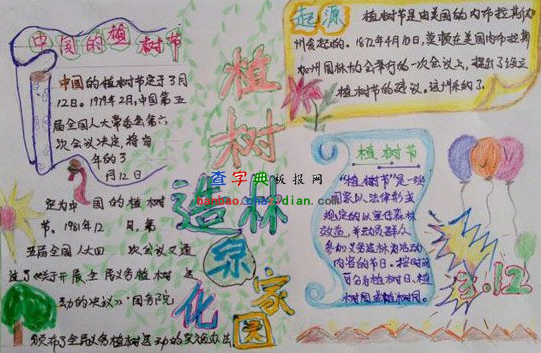 中国的植树节
中国的植树节定于3月
12日。1979年2月,中国第五
届全国人大常委会第六
次会议决定,将每
年的3
月12日
定为中国的植树
节。1981年12月,第
五届全国人大四次会议又通
过了《关于开展全民义务植树运
动的决议》。国务院
颁布了全民义务植树运动的实施办法
植树
造林
绿化
家园
查字典板报网
banbao.chazidian.com
起源
植树节是由美国的内布拉斯加
州发起的。1872年4月10日,莫顿在美国内布拉斯
加州园林协会举行的一次会议上,提出了设立
植树节的建议。
植树节
"植树节"是一些
国家以法律形式
规定的以宣传森林
效益,并动员群众
参加义务造林为活动
内容的节日。按时间
可分为植树日、植
树周或植树月。
3.12